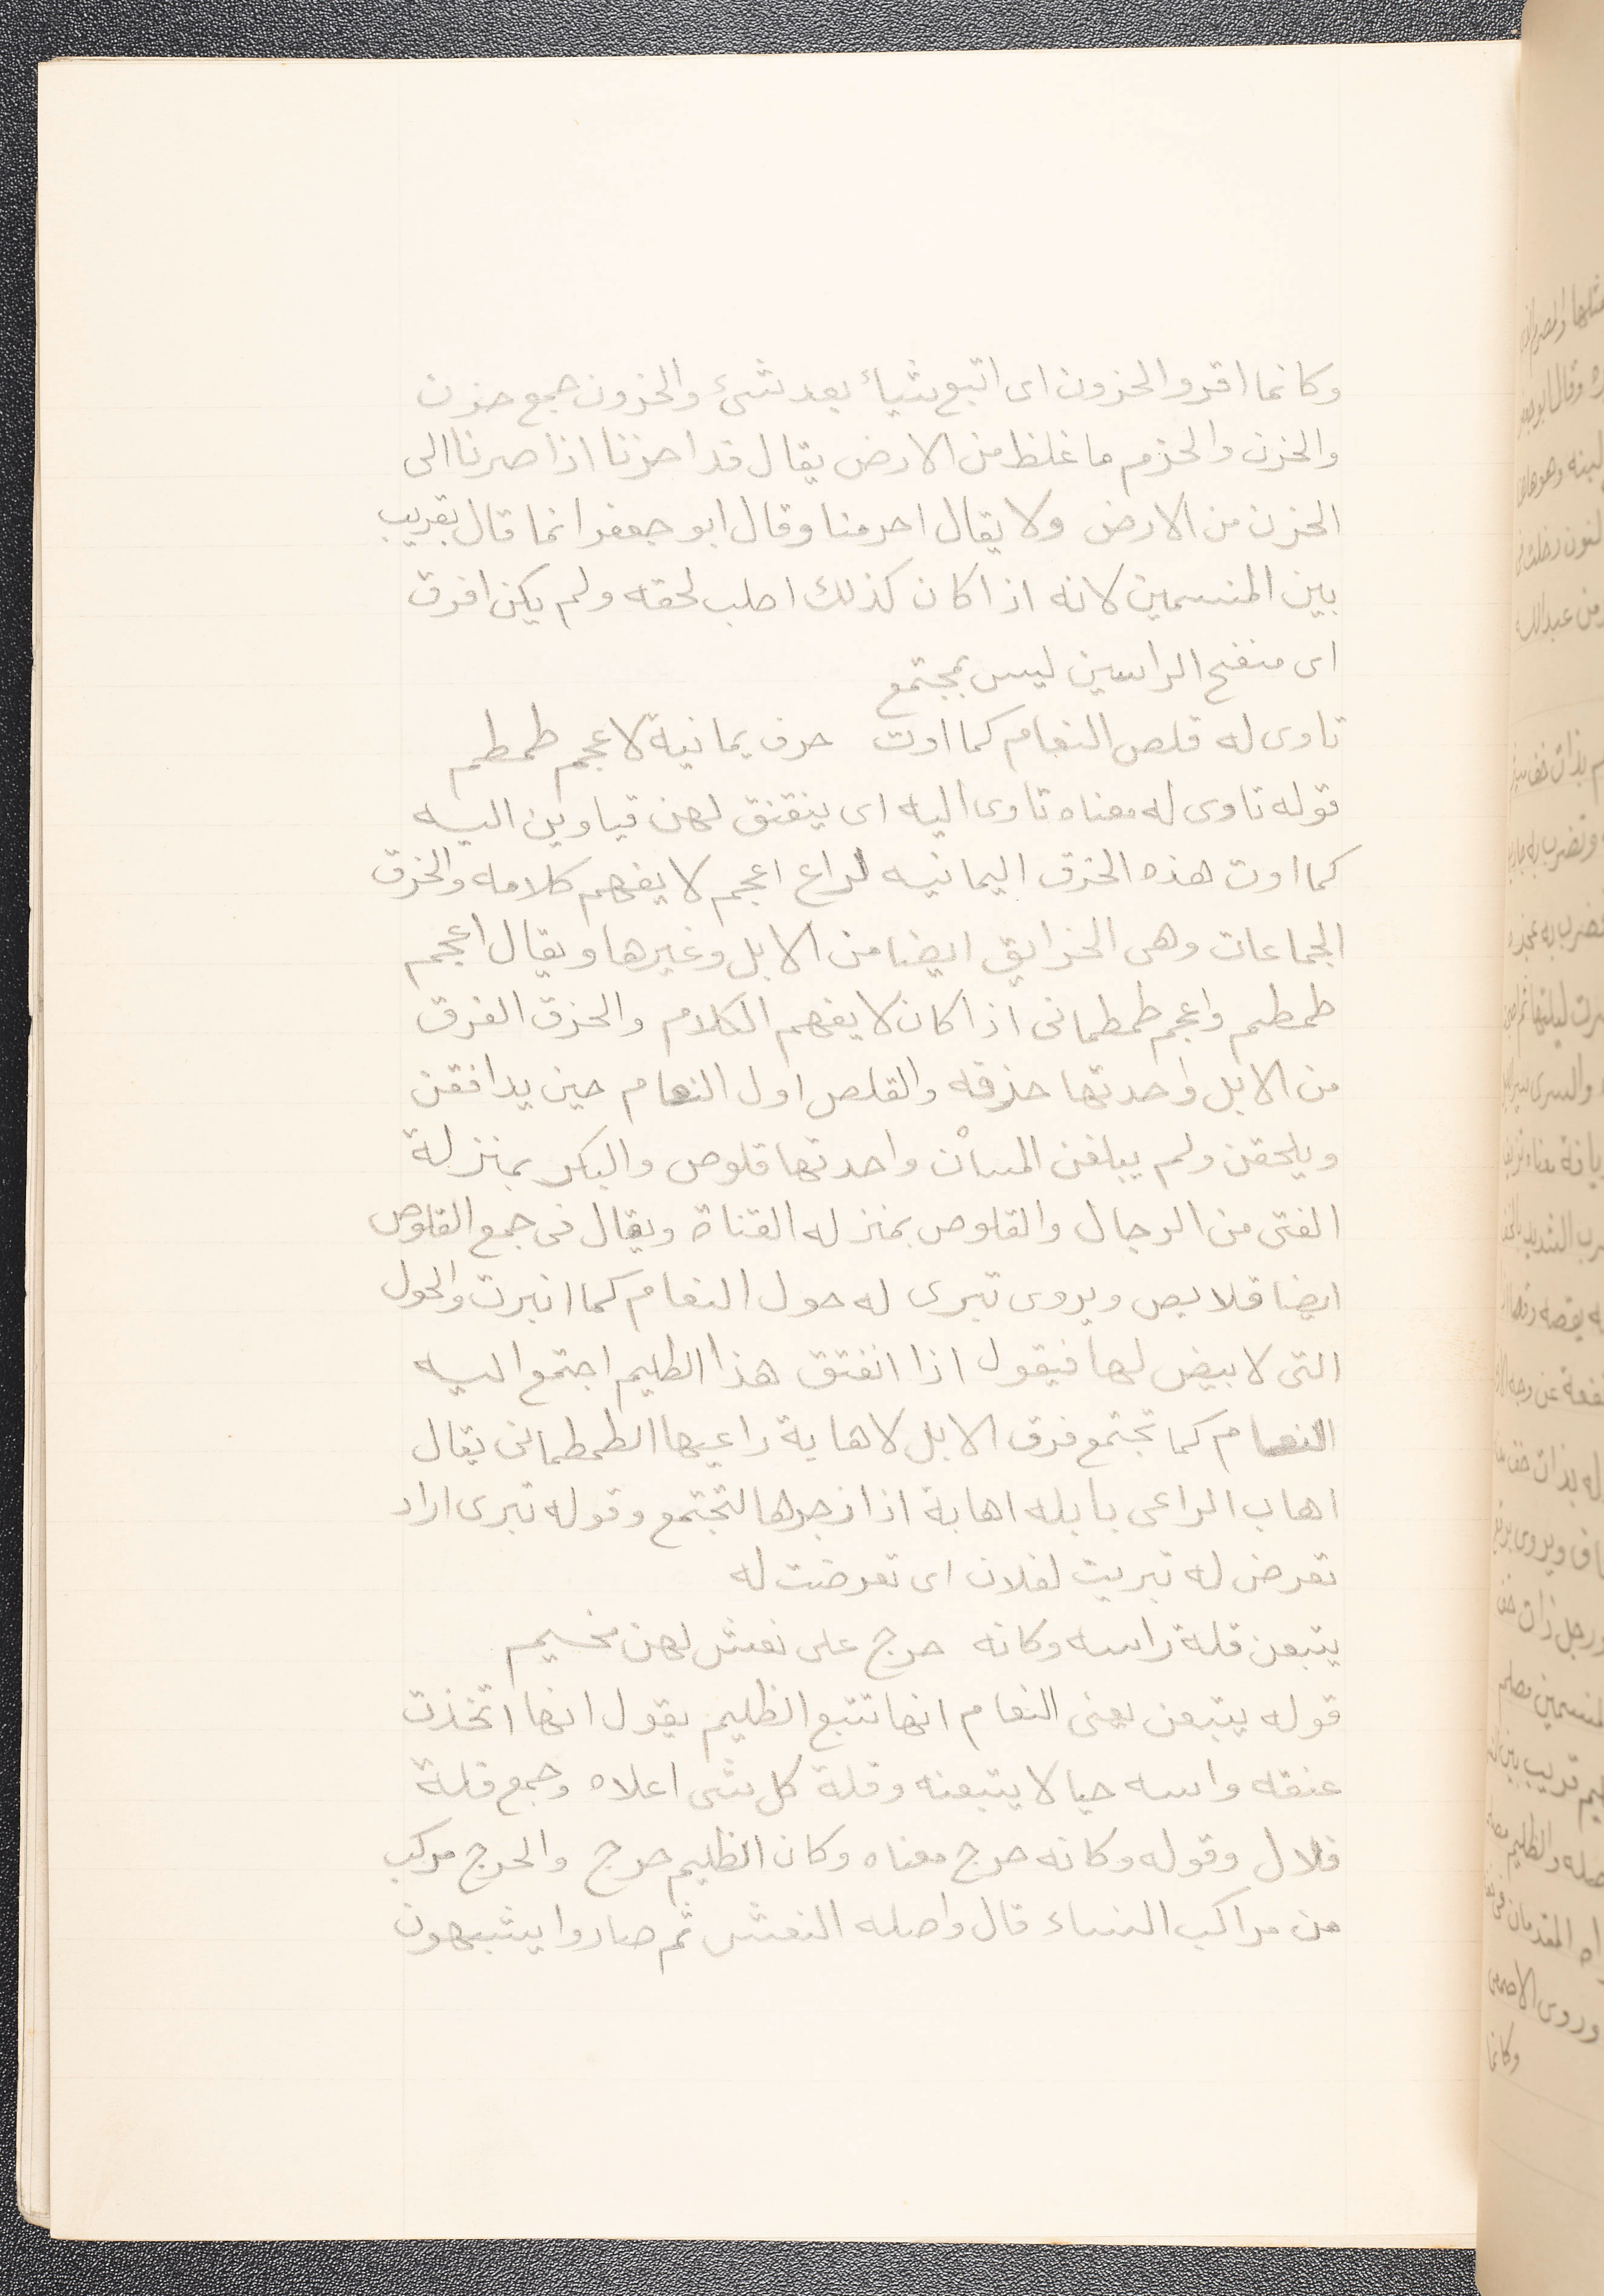 وكانما اقرو الحزون اى اتبع شيأ بعد شىء والحزون جمع حزن
والحزن والحزم ما غلظ من الارض يقال قد احزنا اذا صرنا الى
الحزن من الارض ولا يقال احزمنا وقال ابو جعفر انما قال بقريب
بين المنسمين لانه اذا كان كذلك اصلب لحقه ولم يكن افرق
اى منفتح الراسين ليس بمجتمع
تاوى له قلص النعام كما اوت حزق يمانية لاعجم طمطم
قوله تاوى له معناه تاوى اليه اى ينقنق لهن فياوين اليه
كما اوت هذه الحزق اليمانيه لراع اعجم لا يفهم كلامه والحزق
الجماعات وهى الحزايق ايضا من الابل وغيرها ويقال اعجم
طمطم واعجم طمطمانى اذا كان لا يفهم الكلام والحزق الفرق
من الابل واحدتها حزقه والقلص اول النعام حين يدافقن
ويلحقن ولم يبلغن المسان واحدتها قلوص والبكر بمنزلة
الفتى من الرجال والقلوص بمنزله القناة ويقال فى جمع القلوص
ايضا قلايص ويروى تبرى له حول النعام كما انبرت والحول
التى لا بيض لها فيقول اذا انفتق هذا الظليم اجتمع اليه
النعام كما تجتمع فرق الابل لاهابة راعيها الطمطمانى يقال
اهاب الراعى بابله اهابة اذا زجرها لتجتمع وقوله تبرى اراد
تعرض له تبريت لفلان اى تعرضت له
يتبعن قلة راسه وكانه حرج على نعش لهن مخيم
قوله يتبعن يعنى النعام انها تتبع الظليم يقول انها اتخذت
عنقه واسه حيالا يتبعنه وقلة كل شى اعلاه وجمع قلة
قلال وقوله وكانه حرج معناه وكان الظليم حرج والحرج مركب
من مراكب النساء قال واصله النعش ثم صاروا يشبهون